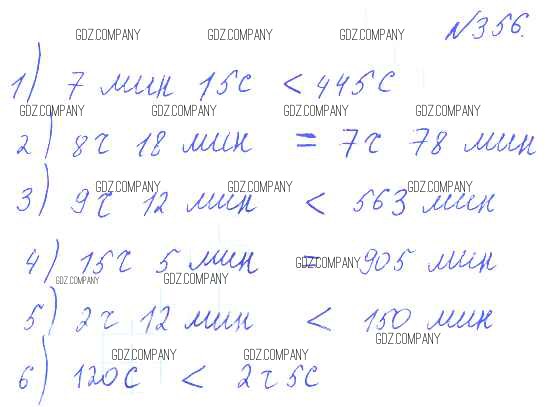 №356.
GDZ.COMPANY GDZ.COMPANY GDZ.COMPANY
1) 7 мин 15с < 445с
GDZ.COMPANY GDZ.COMPANY GDZ.COMPANY GDZ.COMPANY
2) 8ч 18 мин = 7ч 78 мин
GDZ.COMPANY GDZ.COMPANY GDZ.COMPANY
3) 9ч 12 мин < 563 мин
4) 15ч 5 мин = 905 мин
GDZ.COMPANY
GDZ.COMPANY GDZ.COMPANY
5) 2ч 12 мин < 150 мин
GDZ.COMPANY
GDZ.COMPANY GDZ.COMPANY
6) 120с < 2ч 5с